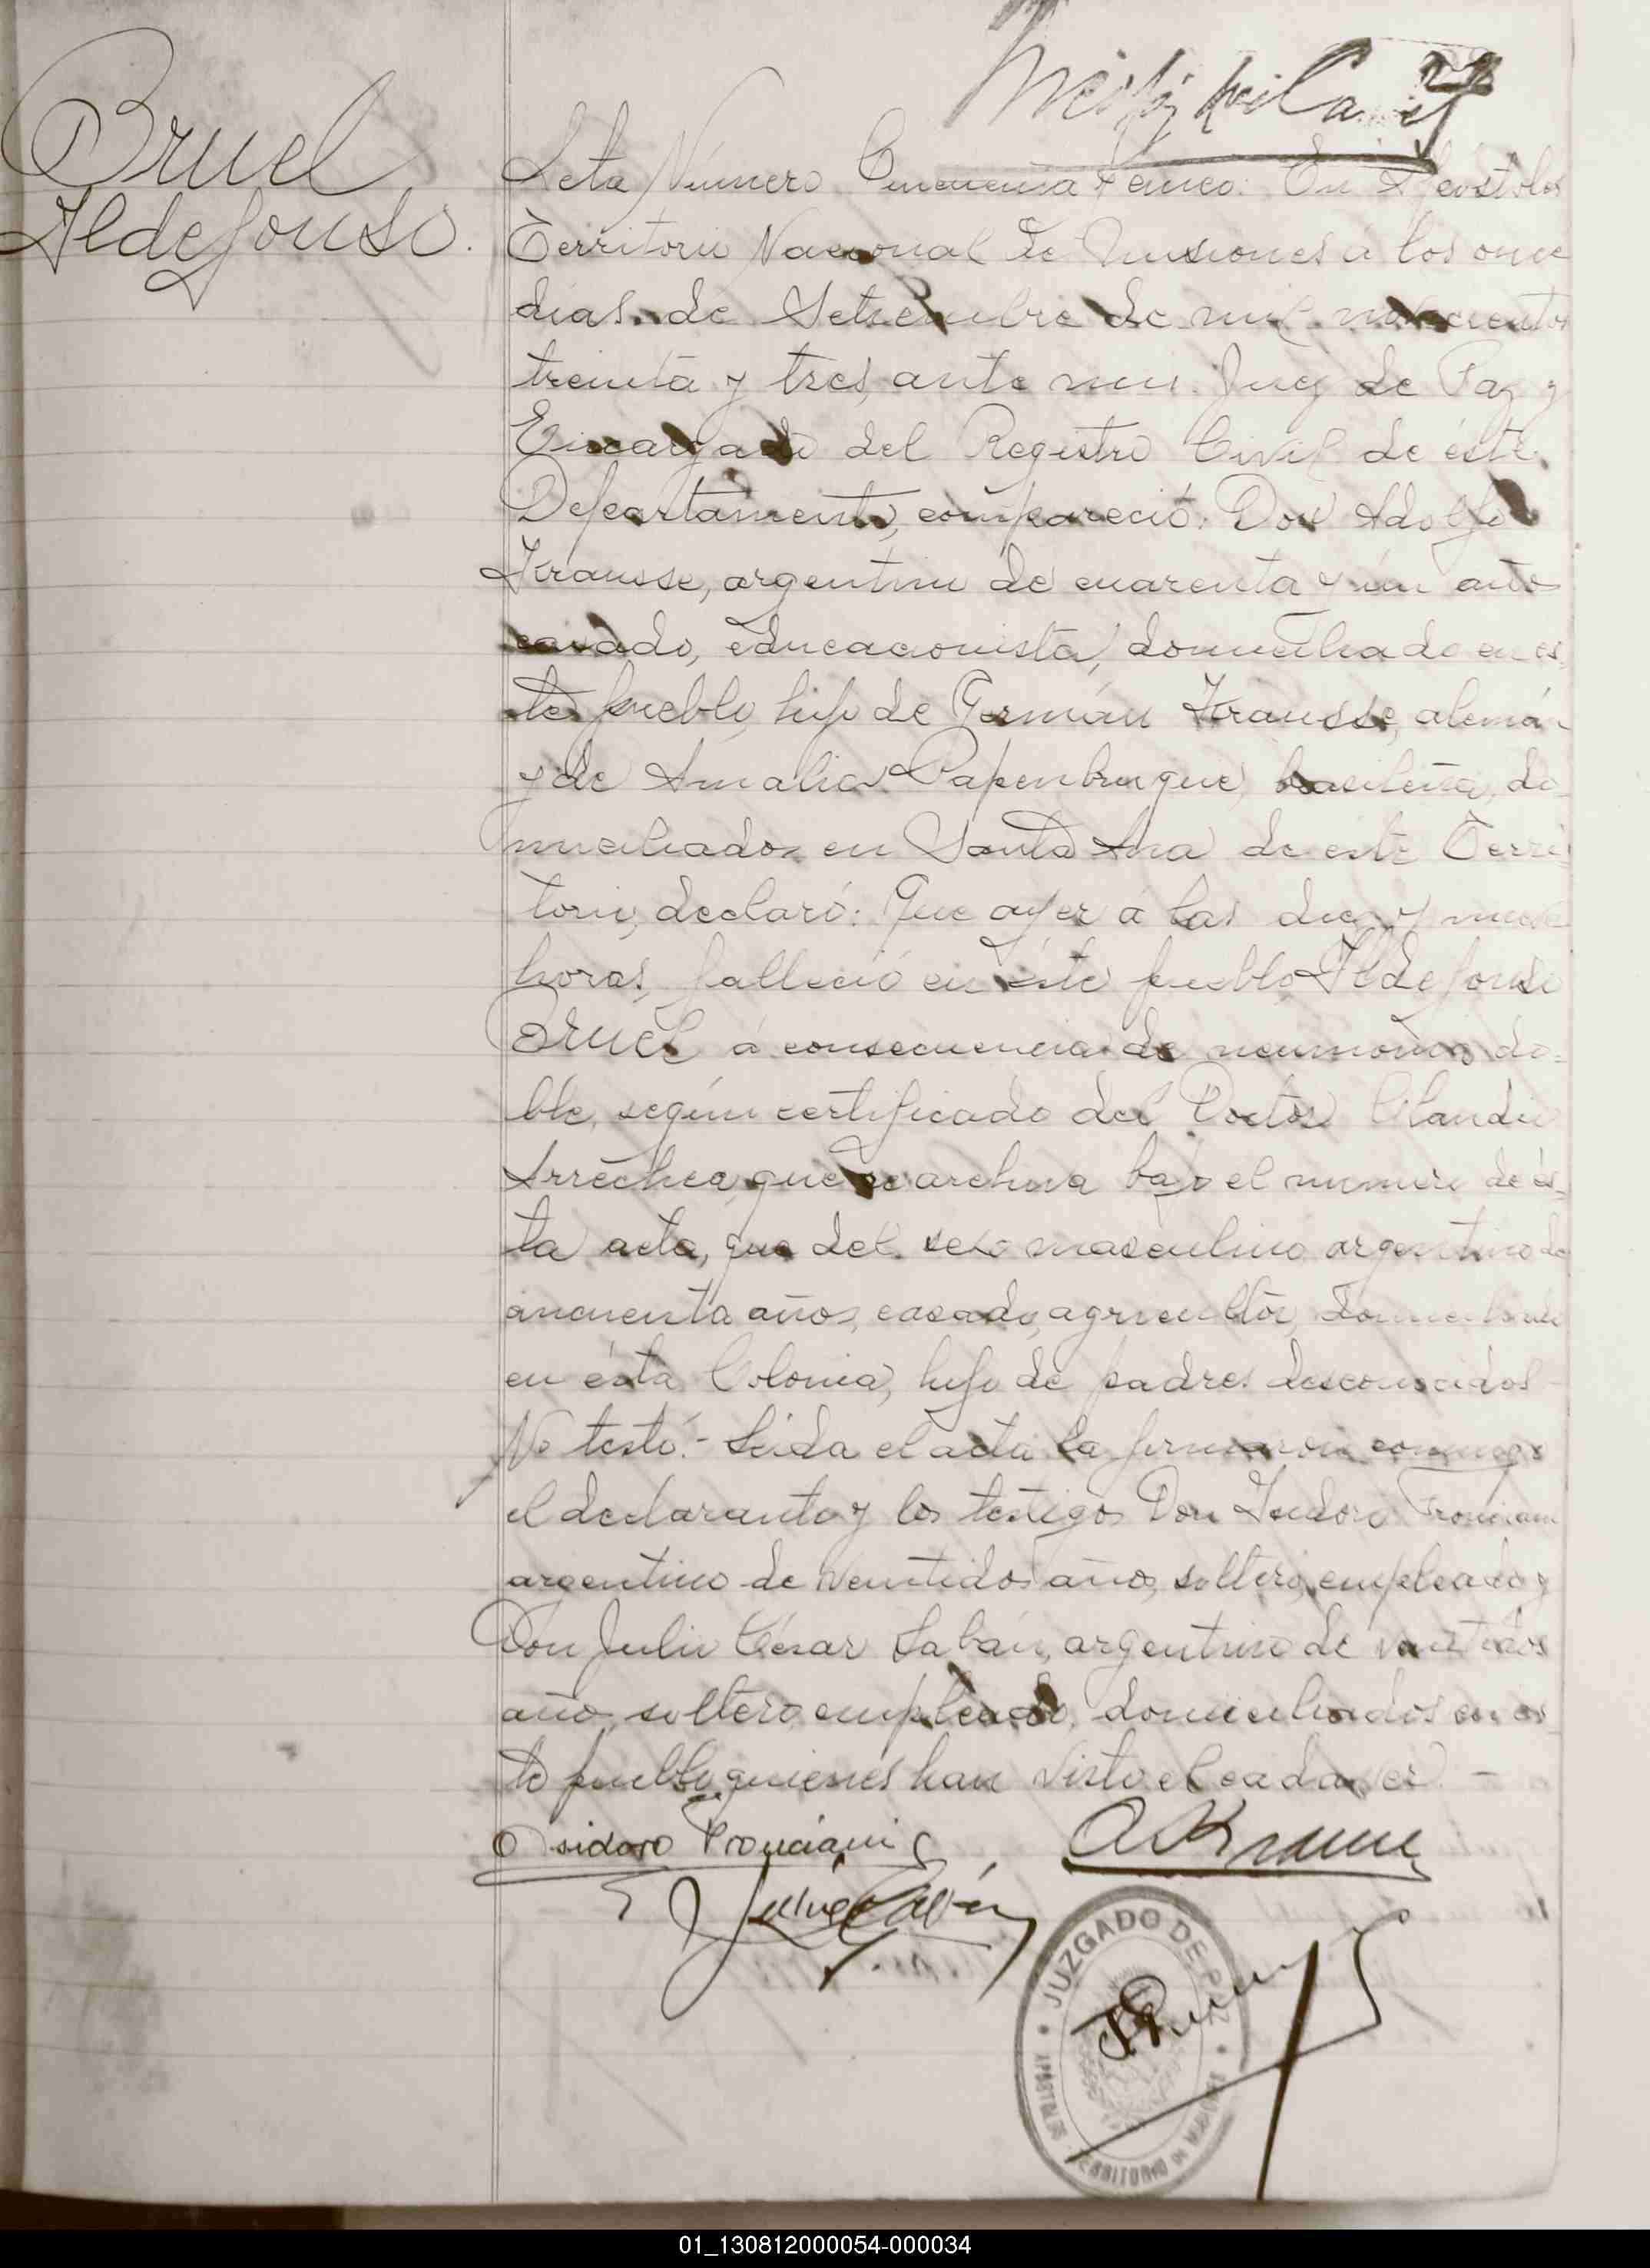 Bruel
Ildefonso.
Acta Número Cincuenta y cinco: En Apóstoles
Territorio Nacional de Misiones á los once
días de Setiembre de mil novecientos
treinta y tres, ante mi Juez de Paz y
Encargado del Registro Civil de éste
Departamento, compareció: Don Adolfo
Krausse, argentino de cuarenta y un años
casado, educacionista, domiciliado en es-
te pueblo, hijo de Germán Krausse, alemán
y de Amalia Papenburgue, brasileña, do-
miciliados en Santa Ana de este Terri-
torio, declaró: Que ayer á las diez y nueve
horas, falleció en éste pueblo Ildefonso
Bruel á consecuencia de neumonía do-
ble, según certificado del Doctor Claudio
Arrechea, que se archiva bajo el numero de és-
ta acta, que del sexo masculino argentino de
cincuenta años, casado, agricultor, domiciliado
en ésta Colonia, hijo de padres desconocidos
No testó.- Leida el acta la firmaron conmigo
el declarante y los testigos Don Isidoro Fronciani
argentino de veintidos años, soltero, empleado y
Don Julio César Labán, argentino de veintidos
años, soltero, empleado, domiciliados en es-
te pueblo, quienes han visto el cadaver. -
Isidoro Fronciani
A Krausse
JUZGADO DE PAZ
APOSTOLES
TERRITORIO DE MISIONES
01_130812000054-000034